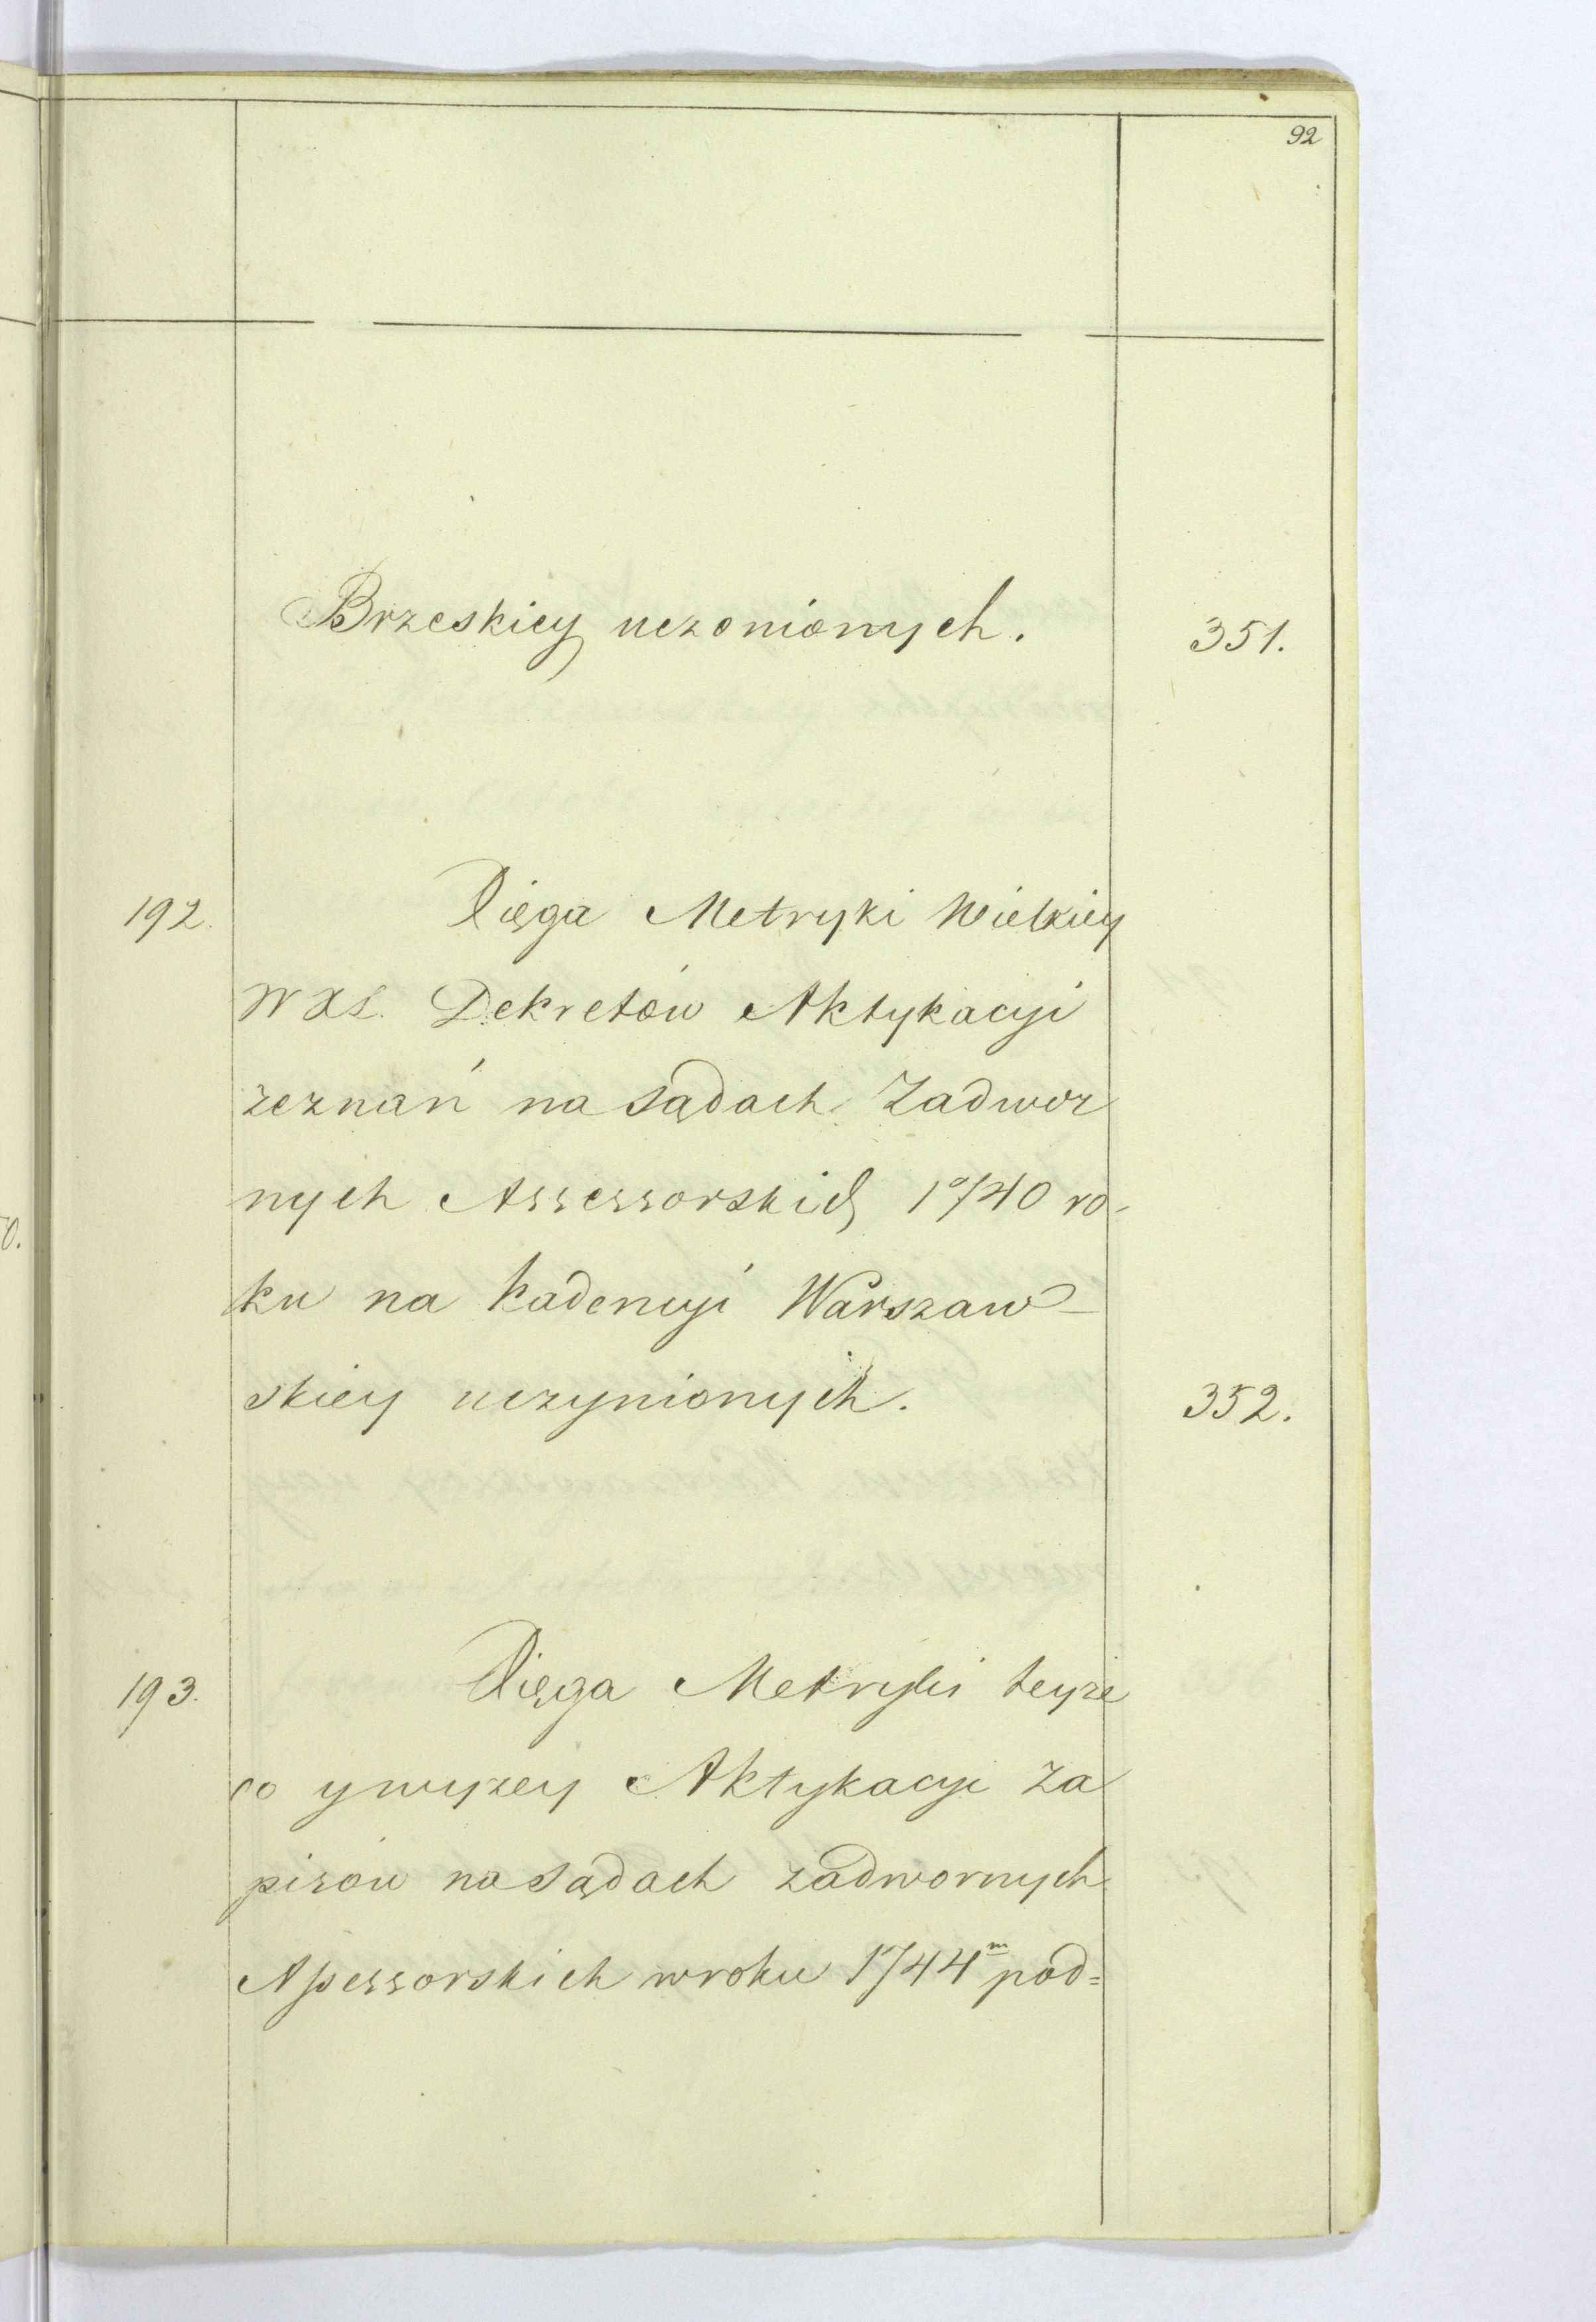 92
Brzeskiey uczonionych. 351.
192. Xięga Metryki Wielkiey
W X L. Dekretów Aktykacyi
zeznań na sądach Zadwor
nych Assessorskich 1740 ro-
ku na kadencyi Warszaw-
skiey uczynionych. 352.
193. Xięga Metryki teyże
co y wyżey Aktykacyi Za
pisów na sądach zadwornych
Assessorskich w roku 1744m pod=